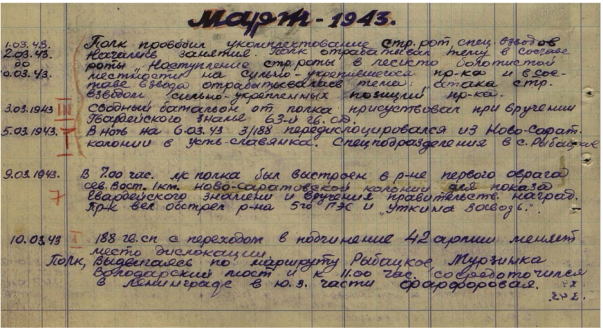 Март - 1943.
1.03.43. Полк проводил укомплектование стр. рот, спец. взводов
2.03.43. Начались занятия. Полк отрабатывал тему в составе
роты „Наступление стр. роты в лесисто болотистой
местности на сильно-укрепившегося пр-ка" и в сос-
таве взвода отрабатывалась тема: „Атака стр.
взводом сильно-укрепленных позиций пр-ка.
3.03.1943 Сводный баталион от полка присутствовал при вручении
Гвардейского знамени 63-й гв. сд.
5.03.1943. В ночь на 6.03.43 3/188 передислоцировался из Ново-Сарат.
колонии в Усть-Славянка. Спецподразделения в с. Рыбацкое
9.03.1943. В 7.00 час. полка был выстроен в р-не первого оврага
сев. вост. 1 км. Ново-Саратовской колонии для показа
7 Гвардейского знамени и вручения правительств. наград.
Пр-к вел обстрел р-на 5го ГЭС и „Уткина заводь".
10.03.43 188 гв. сп с переходом в подчинение 42 армии меняет
место дислокации.
Полк, выдвигаясь по маршруту Рыбацкое, Мурзинка
Володарский мост и к 11.00 час. сосредоточился
в Ленинграде в ю.з. части фарфоровая.